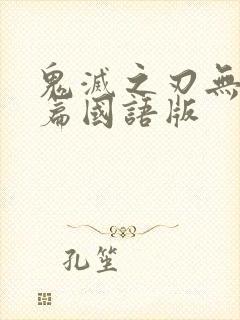 鬼滅之刃無
篇國語版
孔笙